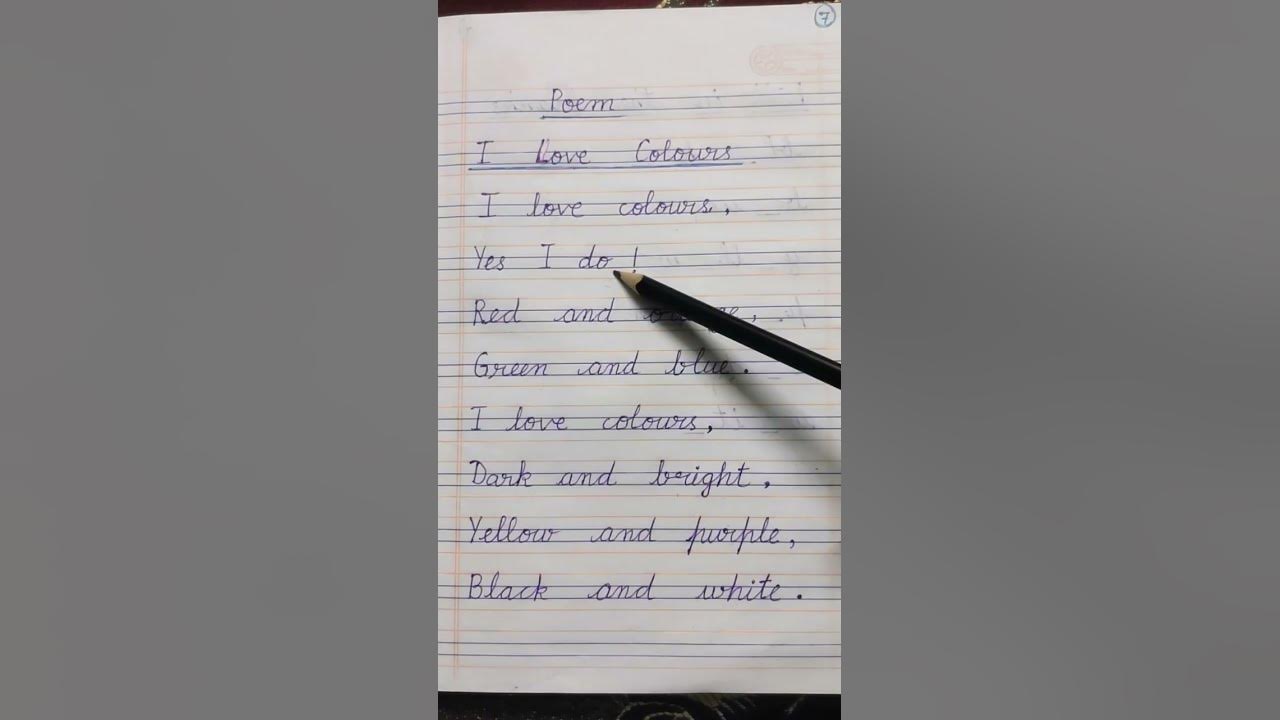 7
Poem
I Love Colours
I love colours,
Yes I do !
Red and orange,
Green and blue.
I love colours,
Dark and bright,
Yellow and purple,
Black and white.